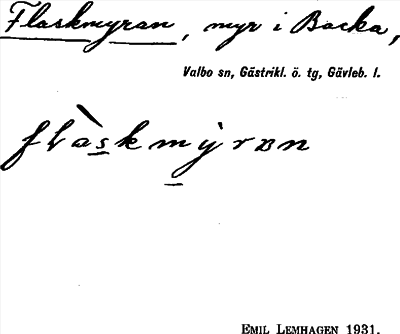 Flaskmyran, myr i Backa,
Valbo sn, Gästrikl. ö. tg, Gävleb. l.
flàskmỳrɒn
EMIL LEMHAGEN 1931.